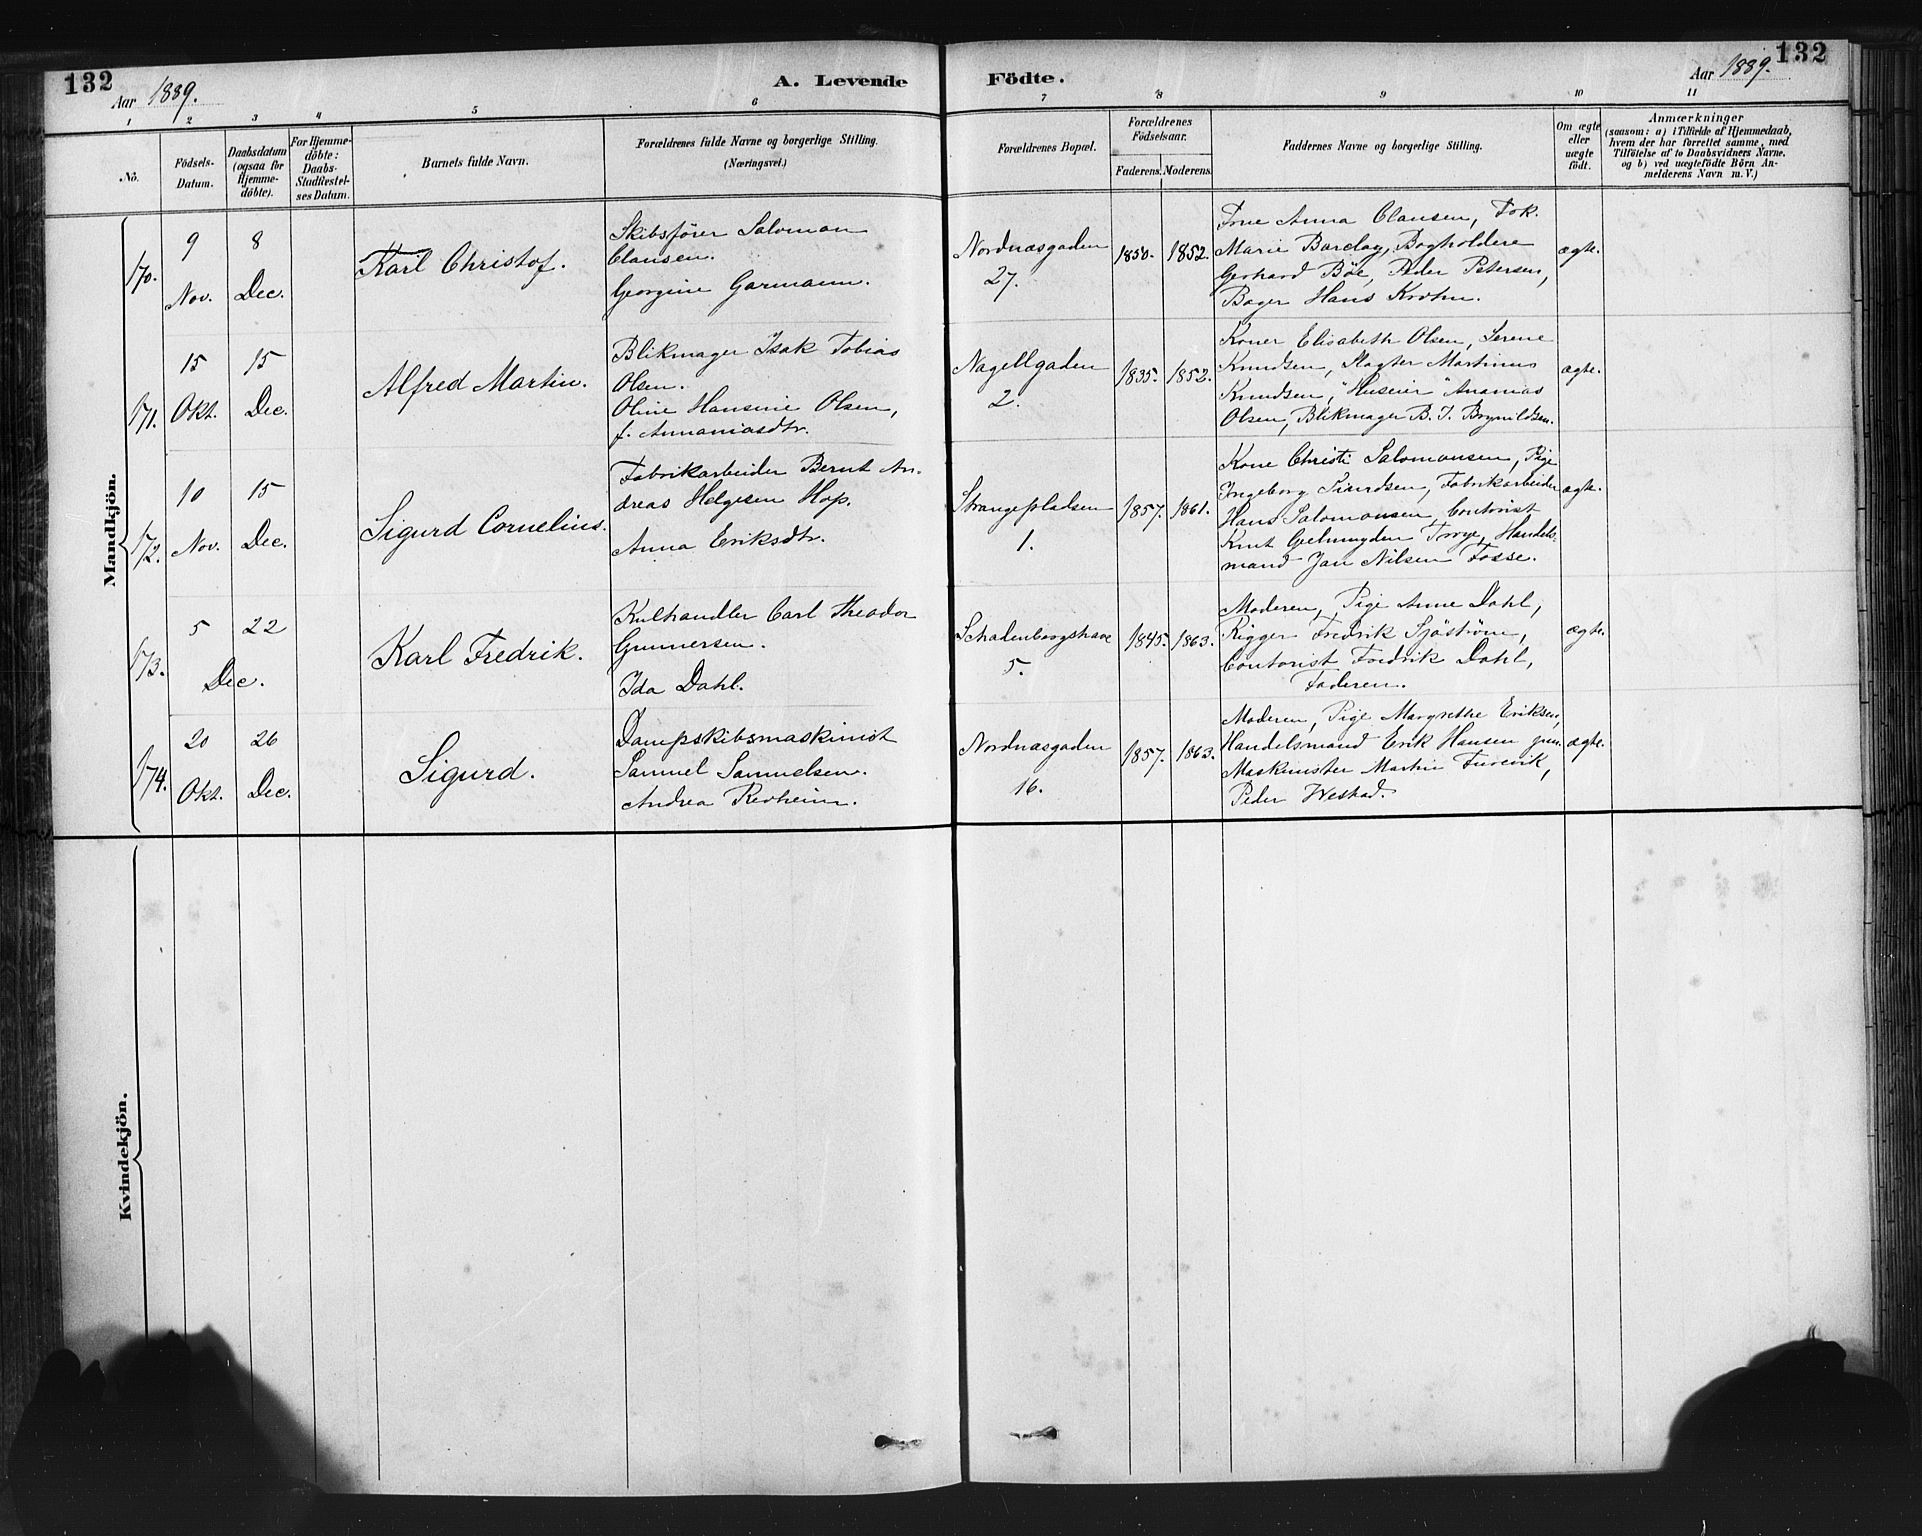 132
Aar 1889.
A. Levende Födte.
Aar 1889.
132
1 2 3 4 5 6 7 8 9 10 11
No.
Födsels-
Datum.
Daabsdatum
(ogsaa for
Hjemme-
döbte).
For Hjemme-
döbte:
Daabs-
Stadfæstel-
ses Datum.
Barnets fulde Navn.
Forældrenes fulde Navne og borgerlige Stilling.
(Næringsvei.)
Forældrenes Bopæl.
Forældrenes
Födselsaar.
Faderens. Moderens.
Faddernes Navne og borgerlige Stilling.
Om ægte
eller
uægte
født.
Anmærkninger
(saasom: a) i Tilfælde af Hjemmedaab,
hvem der har forrettet samme, med
Tilföielse af to Daabsvidners Navne,
og b) ved uægtefödte Börn An-
melderens Navn m. V.)
Mandkjön.
170.
9
Nov.
8
Dec.
Karl Christof.
Skibsfører Salomon
Clausen.
Georgine Garmann.
Nordnæsgaden
27.
1850.
1852.
Frue Anna Clausen, Frk.
Marie Barclay, Bogholdere
Gerhard Böe, Peder Petersen,
Bager Hans Krohn.
ægte.
171.
15
Okt.
15
Dec.
Alfred Martin.
Blikmager Isak Tobias
Olsen.
Oline Hansine Olsen,
f. Annaniasdtr.
Nagellgaden
2.
1835.
1852.
Koner Elisabeth Olsen, Serine
Knudsen, Slagter Martinus
Knudsen, "Huseier" Ananias
Olsen, Blikmager B. J. Brynildsen.
ægte.
172.
10
Nov.
15
Dec.
Sigurd Cornelius.
Fabrikarbeider Bernt An-
dreas Helgesen Hop.
Anna Eriksdtr.
Strangepladsen
1.
1857.
1861.
Kone Christi Salomonsen, Pige
Ingeborg Sivertsen, Fabrikarbeider
Hans Salomonsen, Contorist
Knut Geelmuyden Torvge, Handels-
mand Jan Nilsen Fosse.
ægte.
173.
5
22
Dec.
Karl Fredrik.
Kulhandler Carl Theodor
Gunnersen.
Ida Dahl.
Schadenborgshave
5.
1845.
1863.
Moderen, Pige Anne Dahl,
Rigger Fredrik Sjöström,
Contorist Fredrik Dahl,
Faderen.
ægte.
174.
20
Okt.
26
Dec.
Sigurd.
Dampskibsmaskinist
Samuel Samuelsen.
Andrea Revheim.
Nordnæsgaden
16.
1857.
1863.
Moderen, Pige Margrethe Eriksen,
Handelsmand Erik Hansen jun.
Maskinister Martin Furevik,
Peder Westad.
ægte.
Kvindekjön.